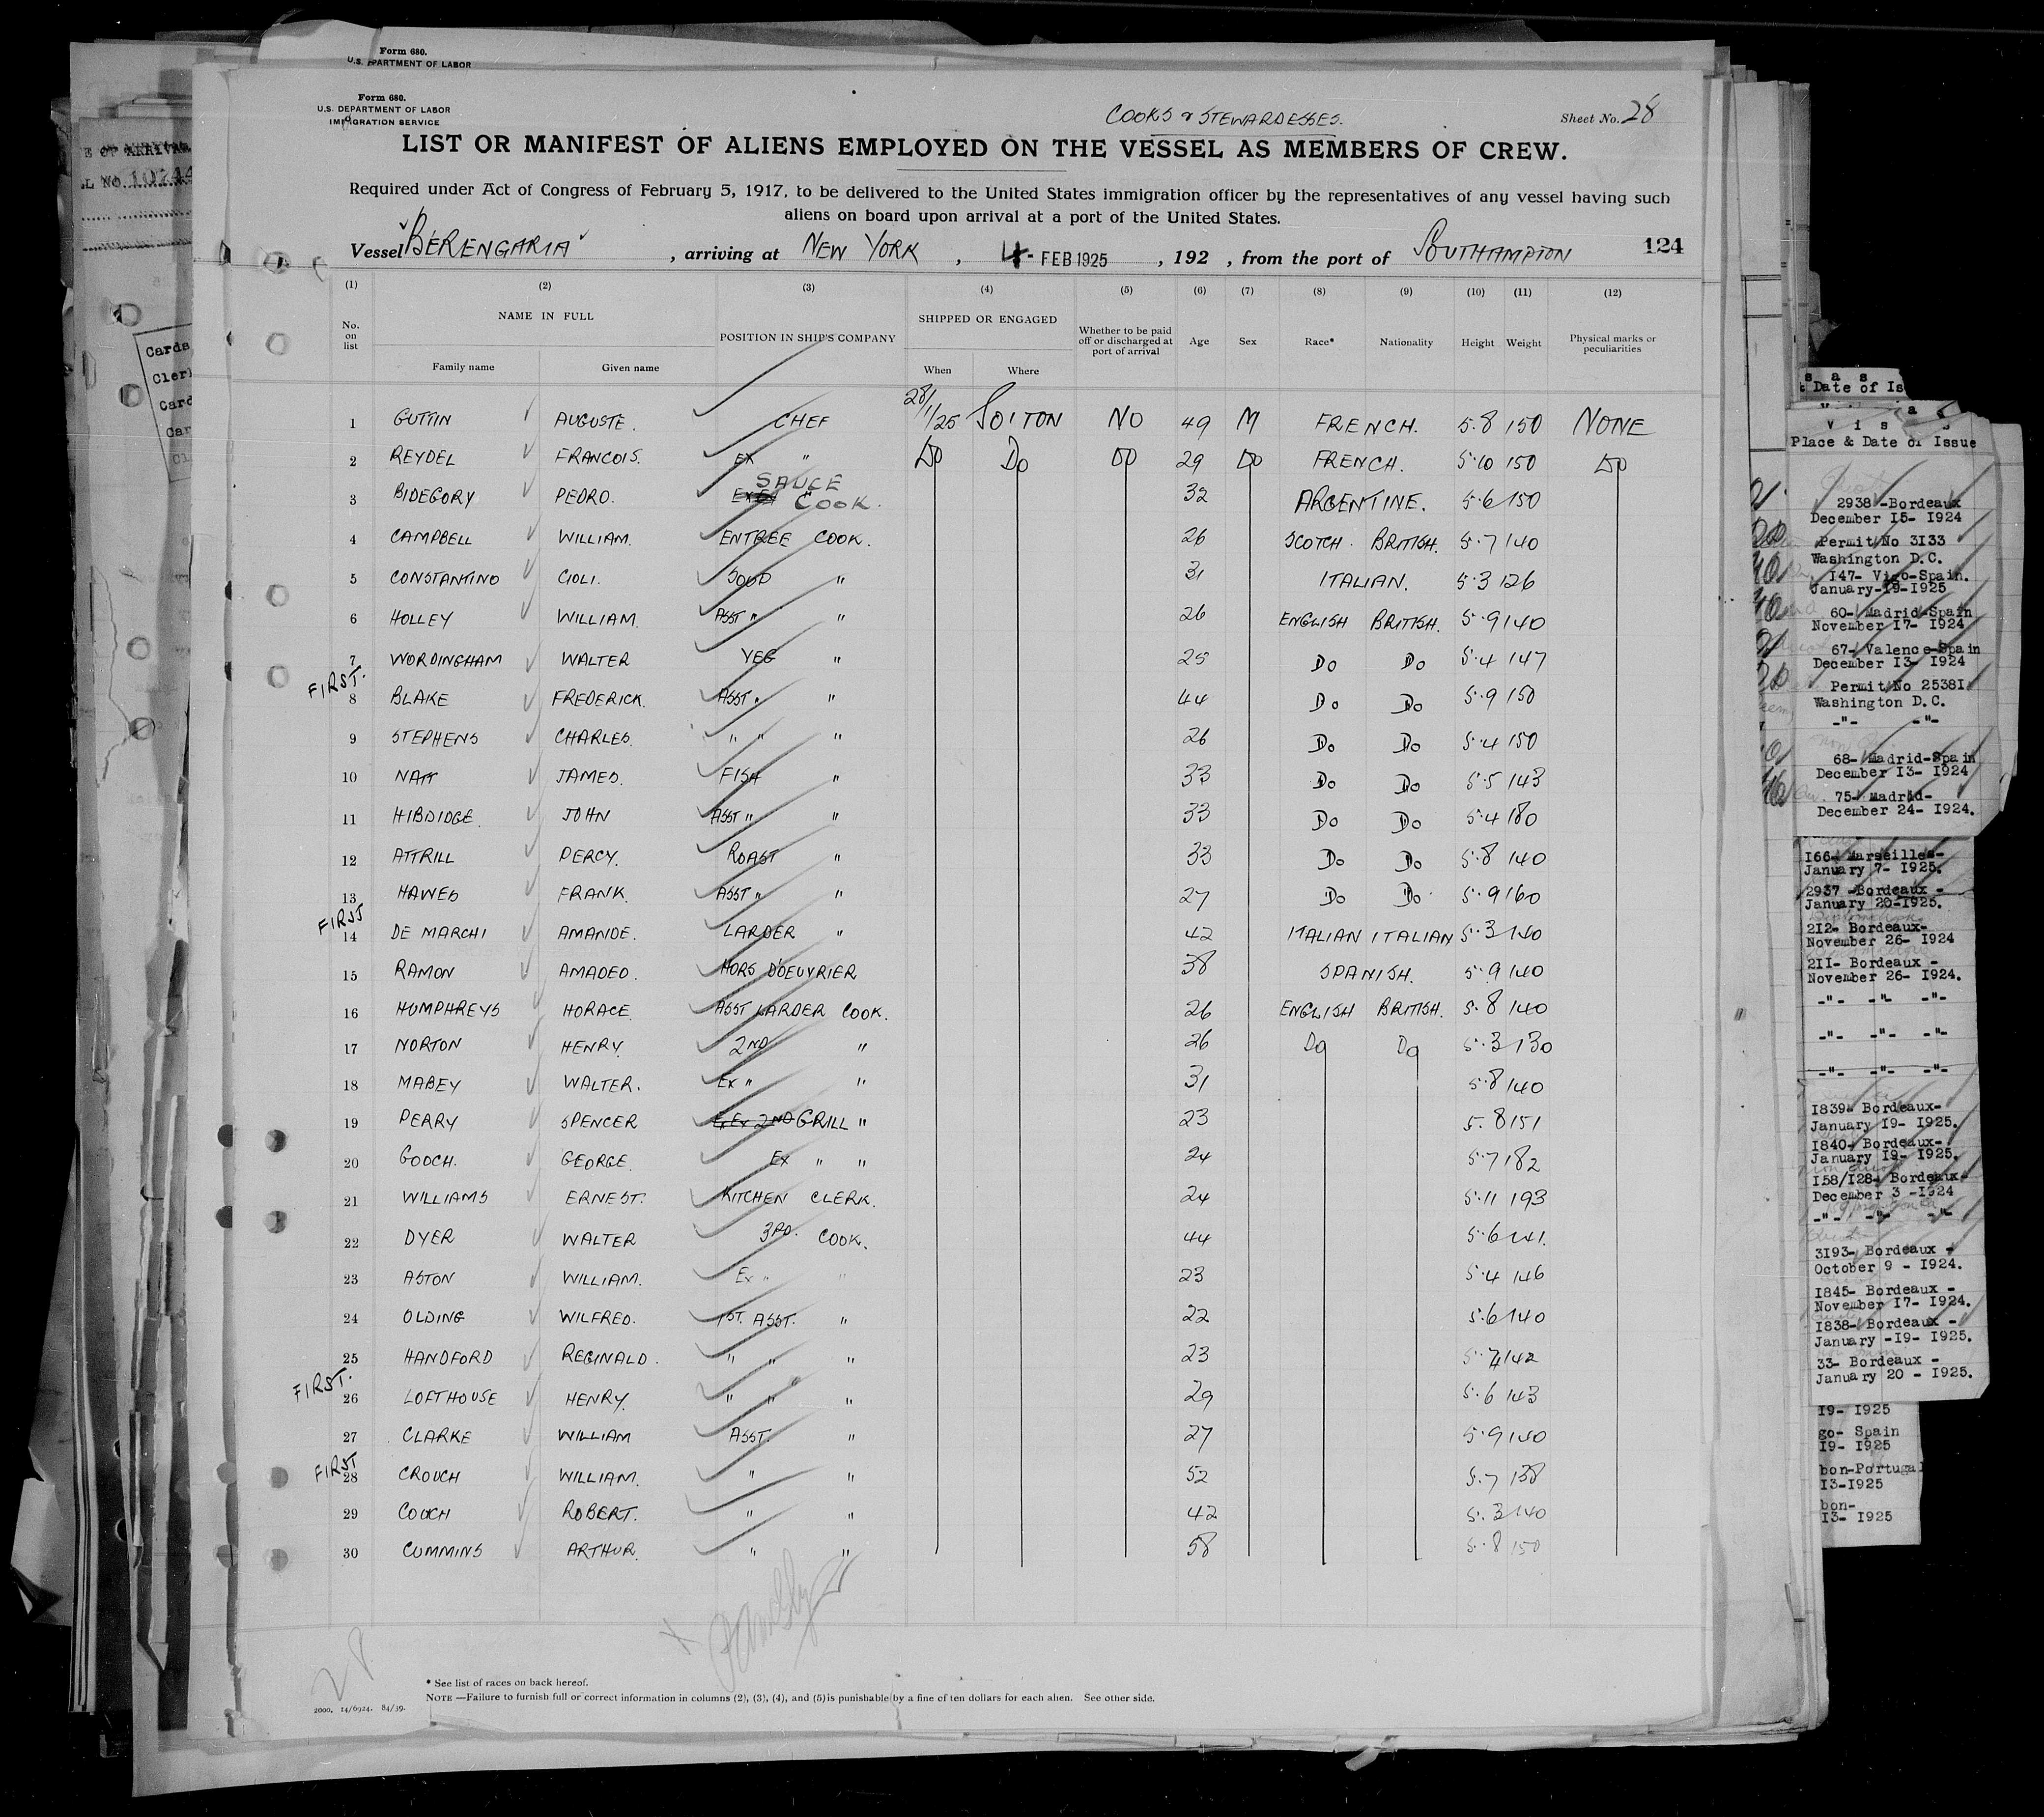 Form 680.
U.S. DEPARTMENT OF LABOR
Form 680.
U.S. DEPARTMENT OF LABOR
IMMIGRATION SERVICE
COOKS & STEWARDESSES.
Sheet No. 28
LIST OR MANIFEST OF ALIENS EMPLOYED ON THE VESSEL AS MEMBERS OF CREW.
Required under Act of Congress of February 5, 1917, to be delivered to the United States immigration officer by the representatives of any vessel having such
aliens on board upon arrival at a port of the United States.
Vessel BERENGARIA, arriving at NEW YORK, 4- FEB 1925, 192 , from the port of SOUTHAMPTON 124
(1) (2) (3) (4) (5) (6) (7) (8) (9) (10) (11) (12)
No. on list NAME IN FULL POSITION IN SHIP'S COMPANY SHIPPED OR ENGAGED Whether to be paid off or discharged at port of arrival Age Sex Race* Nationality Height Weight Physical marks or peculiarities
Family name Given name When Where
1 GUTTIN AUGUSTE. CHEF 28/1/25 SO'TON NO 49 M FRENCH. 5.8 150 NONE
2 REYDEL FRANCOIS. EX " DO DO DO 29 DO FRENCH. 5.10 150 DO
3 BIDEGORY PEDRO. SAUCE COOK. 32 ARGENTINE. 5.6 150
4 CAMPBELL WILLIAM. ENTREE COOK. 26 SCOTCH. BRITISH. 5.7 140
5 CONSTANTINO CIOLI. SOUP " 31 ITALIAN. 5.3 126
6 HOLLEY WILLIAM. ASST " " 26 ENGLISH BRITISH. 5.9 140
7 WORDINGHAM WALTER VEG " 25 DO DO 5.4 147
FIRST.
8 BLAKE FREDERICK. ASST " " 44 DO DO 5.9 150
9 STEPHENS CHARLES. " " " 26 DO DO 5.4 150
10 NATT JAMES. FISH " 33 DO DO 5.5 143
11 HIBDIDGE. JOHN ASST " " 33 DO DO 5.4 180
12 ATTRILL PERCY. ROAST " 33 DO DO 5.8 140
13 HAWES FRANK. ASST " " 27 DO DO 5.9 160
FIRST
14 DE MARCHI AMANDE. LARDER " 42 ITALIAN ITALIAN 5.3 140
15 RAMON AMADEO. HORS D'OEUVRIER 38 SPANISH. 5.9 140
16 HUMPHREYS HORACE. ASST LARDER COOK. 26 ENGLISH BRITISH. 5.8 140
17 NORTON HENRY. 2ND " 26 DO DO 5.3 130
18 MABEY WALTER. EX " " 31 5.8 140
19 PERRY SPENCER Ex 2ND GRILL " 23 5.8 151
20 GOOCH. GEORGE. EX " " 24 5.7 182
21 WILLIAMS ERNEST. KITCHEN CLERK. 24 5.11 193
22 DYER WALTER 3RD. COOK. 44 5.6 141.
23 ASTON WILLIAM. EX " " 23 5.4 146
24 OLDING WILFRED. 1ST. ASST. " 22 5.6 140
25 HANDFORD REGINALD. " " " 23 142
FIRST.
26 LOFTHOUSE HENRY. " " " 29 5.6 143
27 CLARKE WILLIAM ASST. " 27 5.9 140
FIRST
28 CROUCH WILLIAM. " " 52 5.7 138
29 COUCH ROBERT. " " 42 5.3 140
30 CUMMINS ARTHUR. " " 58 5.8 150
28
* See list of races on back hereof.
NOTE—Failure to furnish full or correct information in columns (2), (3), (4), and (5) is punishable by a fine of ten dollars for each alien. See other side.
2000. 14/6924. 84/39.
Place & Date of Issue
2938 -Bordeaux
December 15- 1924
Permit No 3133
Washington D.C.
147- Vigo-Spain.
January-19-1925
60- Madrid-Spain
November 17- 1924
67- Valence-Spain
December 13- 1924
Permit No 25381.
Washington D.C.
-"- -"-
68- Madrid-Spain
December 13- 1924
75- Madrid-
December 24- 1924.
166- Marseilles-
January 7- 1925.
2937 -Bordeaux -
January 20-1925.
212- Bordeaux-
November 26- 1924
211- Bordeaux -
November 26- 1924.
-"- -"- -"-
-"- -"- -"-
-"- -"- -"-
1839- Bordeaux-
January 19- 1925.
1840- Bordeaux-
January 19- 1925.
158/128- Bordeaux-
December 3 -1924
-"- -"- -"-
3193- Bordeaux -
October 9 - 1924.
1845- Bordeaux -
November 17- 1924.
1838- Bordeaux -
January -19- 1925.
33- Bordeaux -
January 20 - 1925.
19- 1925
go- Spain
19- 1925
bon-Portugal
13-1925
bon-
13- 1925